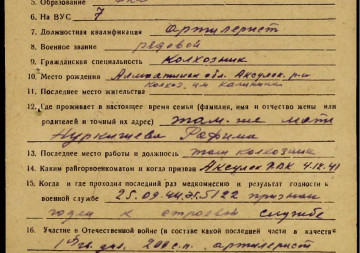 5. Образование
6. На ВУС 7
7. Должностная квалификация Артилерист
8. Военное звание рядовой
9. Гражданская специальность Колхозник
10. Место рождения Алмаатинск обл. Аксуск. р-н
11. Последнее место жительства колхоз. им Калинина
12. Где проживает в настоящее время семья (фамилия, имя и отчество жены или
родителей и точный их адрес) там-же мать
13. Последнее место работы и должность там колхозник
14. Каким райгорвоенкоматом и когда призван Аксуск РВК 4.12.41
15. Когда и где проходил последний раз медкомиссию и результат годности к
военной службе 25.09.44 признан
годен к строевой службе
16. Участие в Отечественной войне (в составе какой последней части в качестве
артилерист